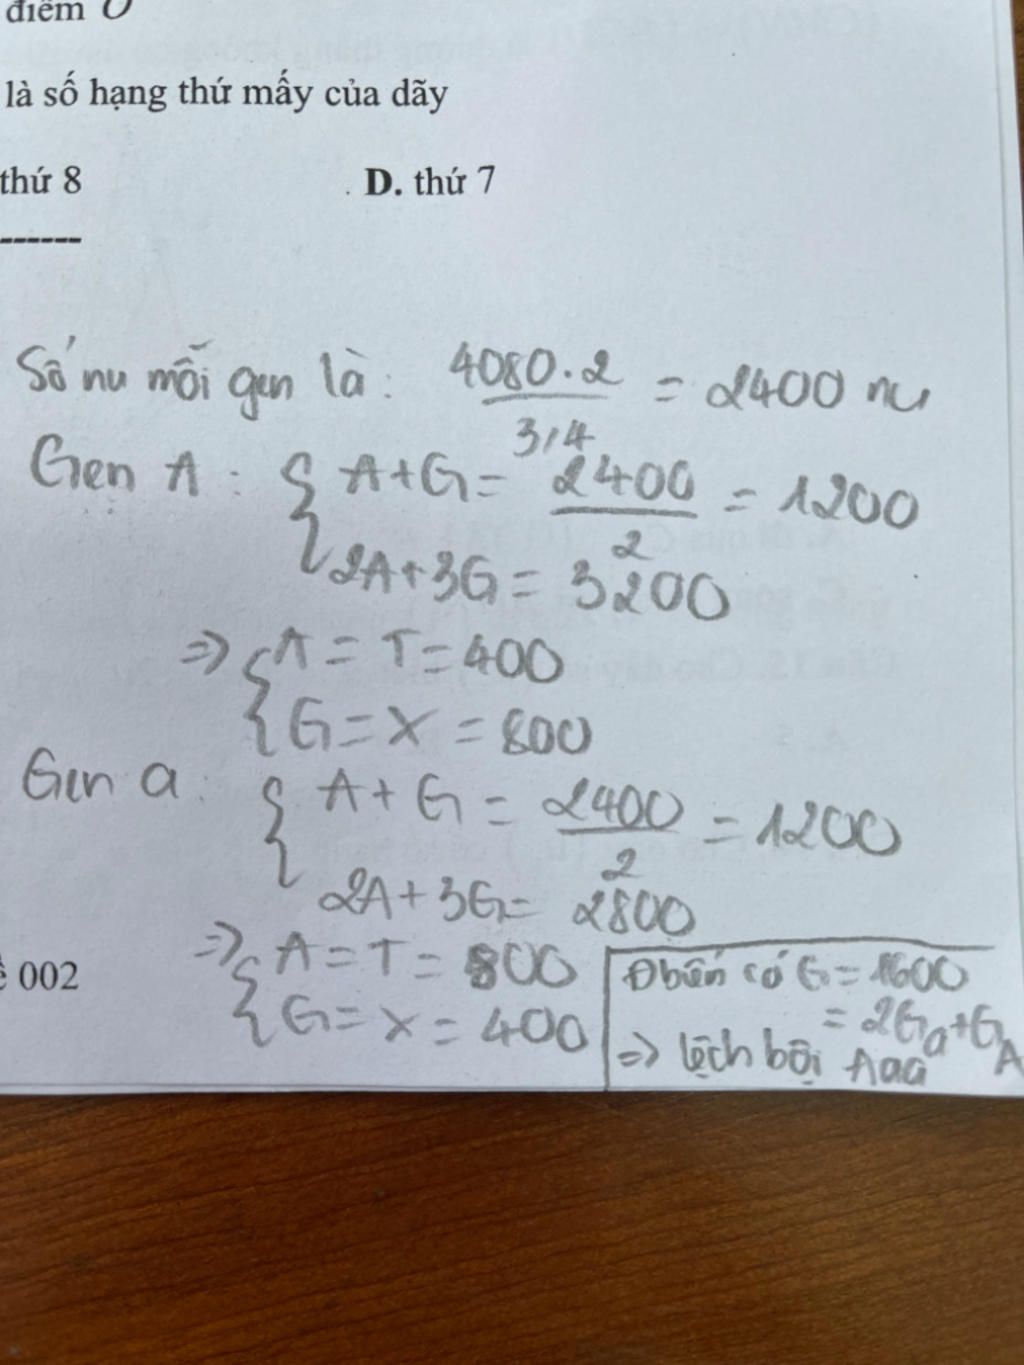 điểm O
là số hạng thứ mấy của dãy
thứ 8
D. thứ 7
------
Số nu mỗi gen là: 4080.2 / 3,4 = 2400 nu
Gen A: { A+G = 2400 / 2 = 1200
2A+3G = 3200
=> { A = T = 400
G = X = 800
Gen a: { A + G = 2400 / 2 = 1200
2A + 3G = 2800
=> { A = T = 800
G = X = 400
002
Đbiến có G = 1600
= 2Ga + GA
=> lệch bội Aaa